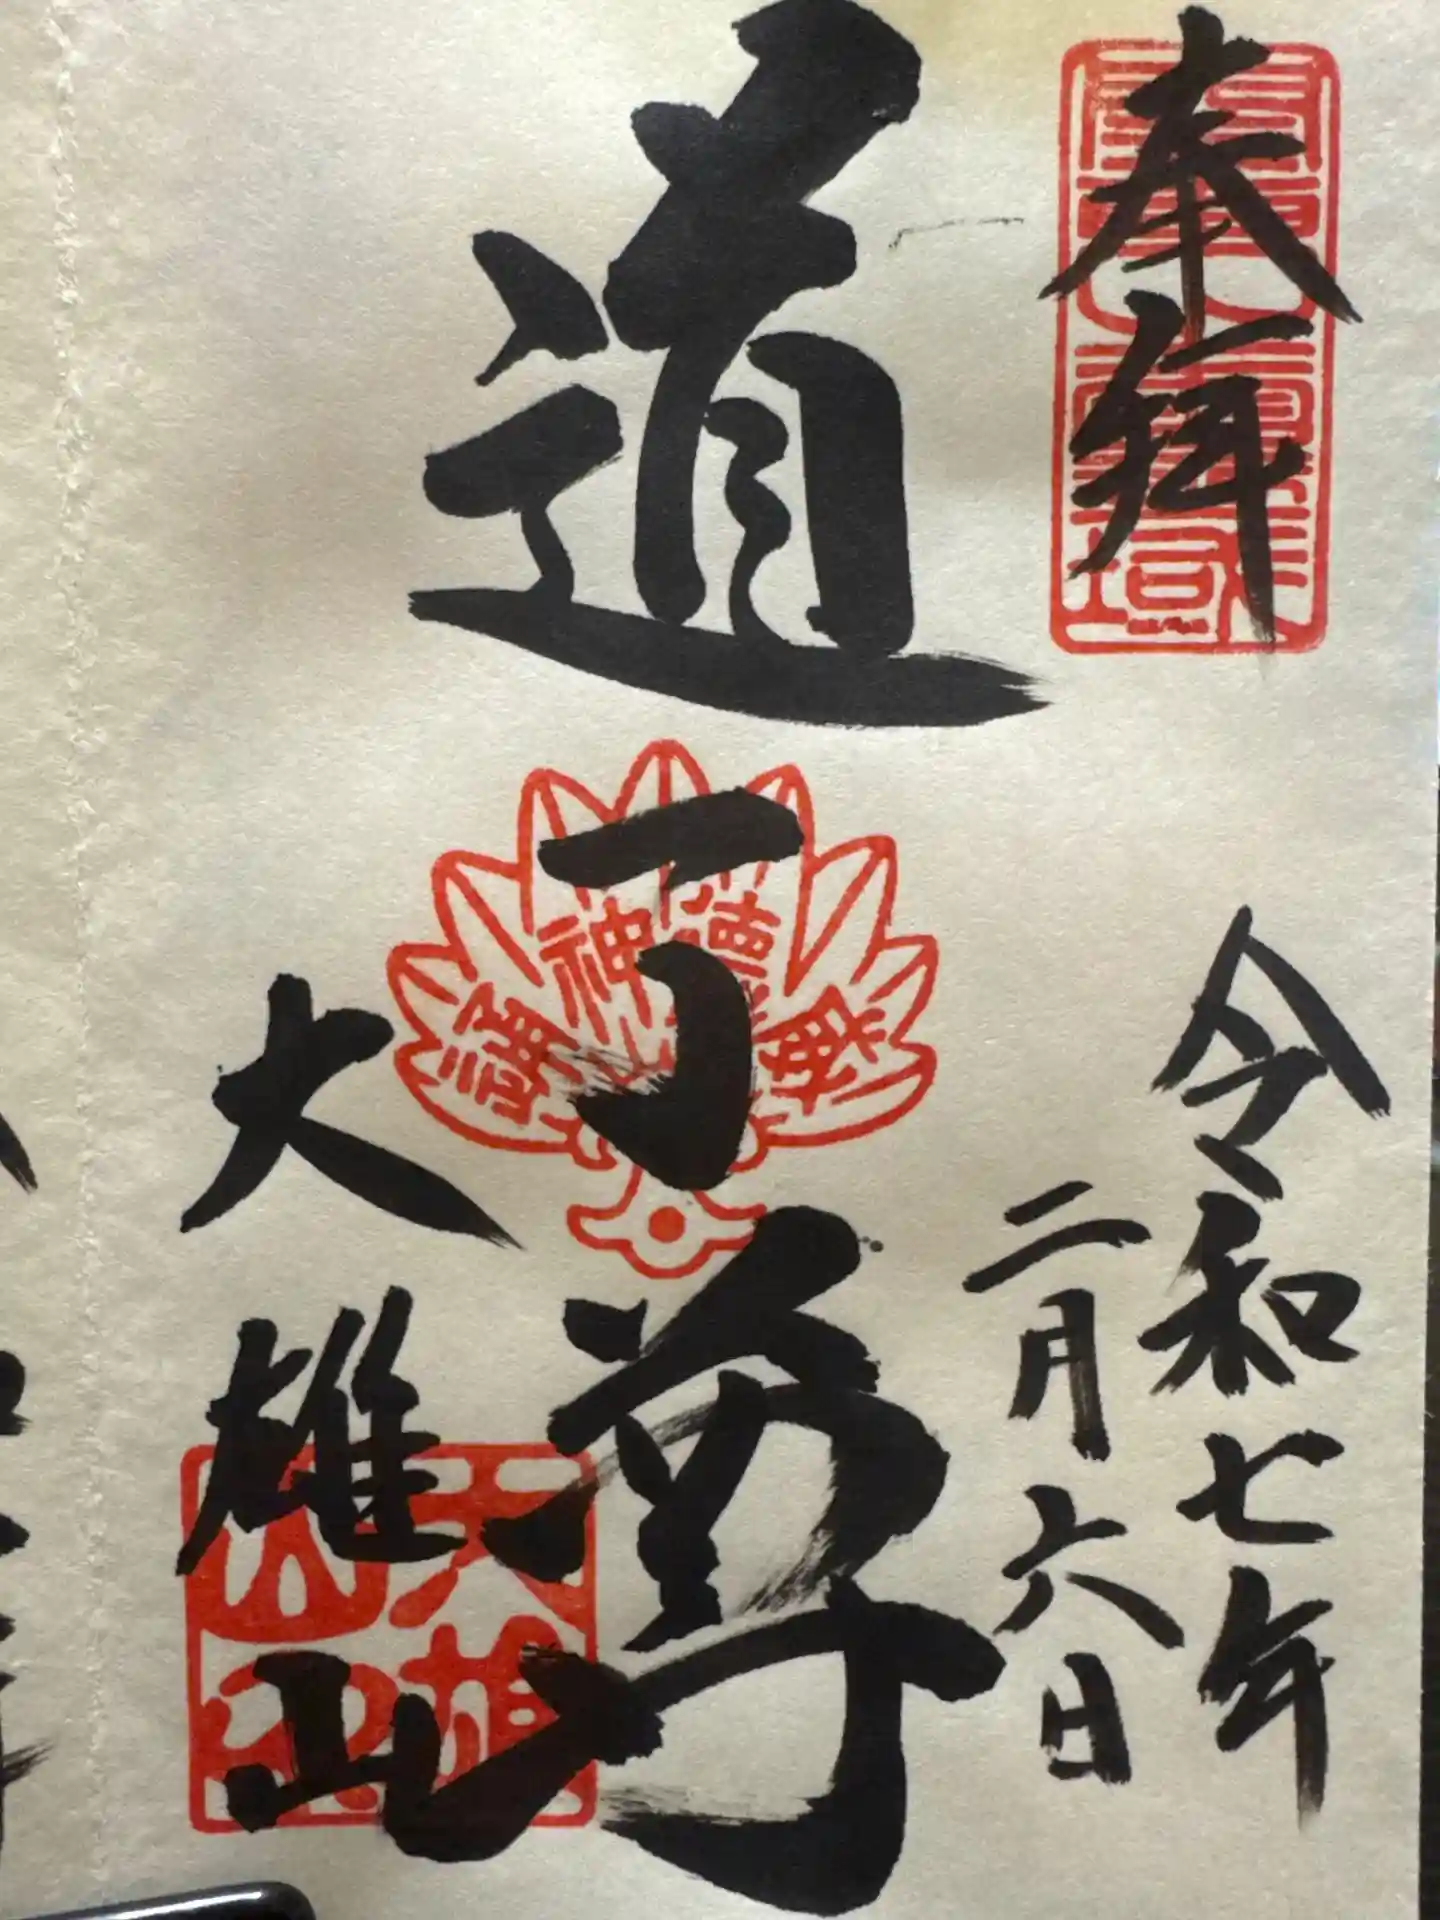 奉拝
令和七年
二月六日
道了尊
大雄山
威徳神通